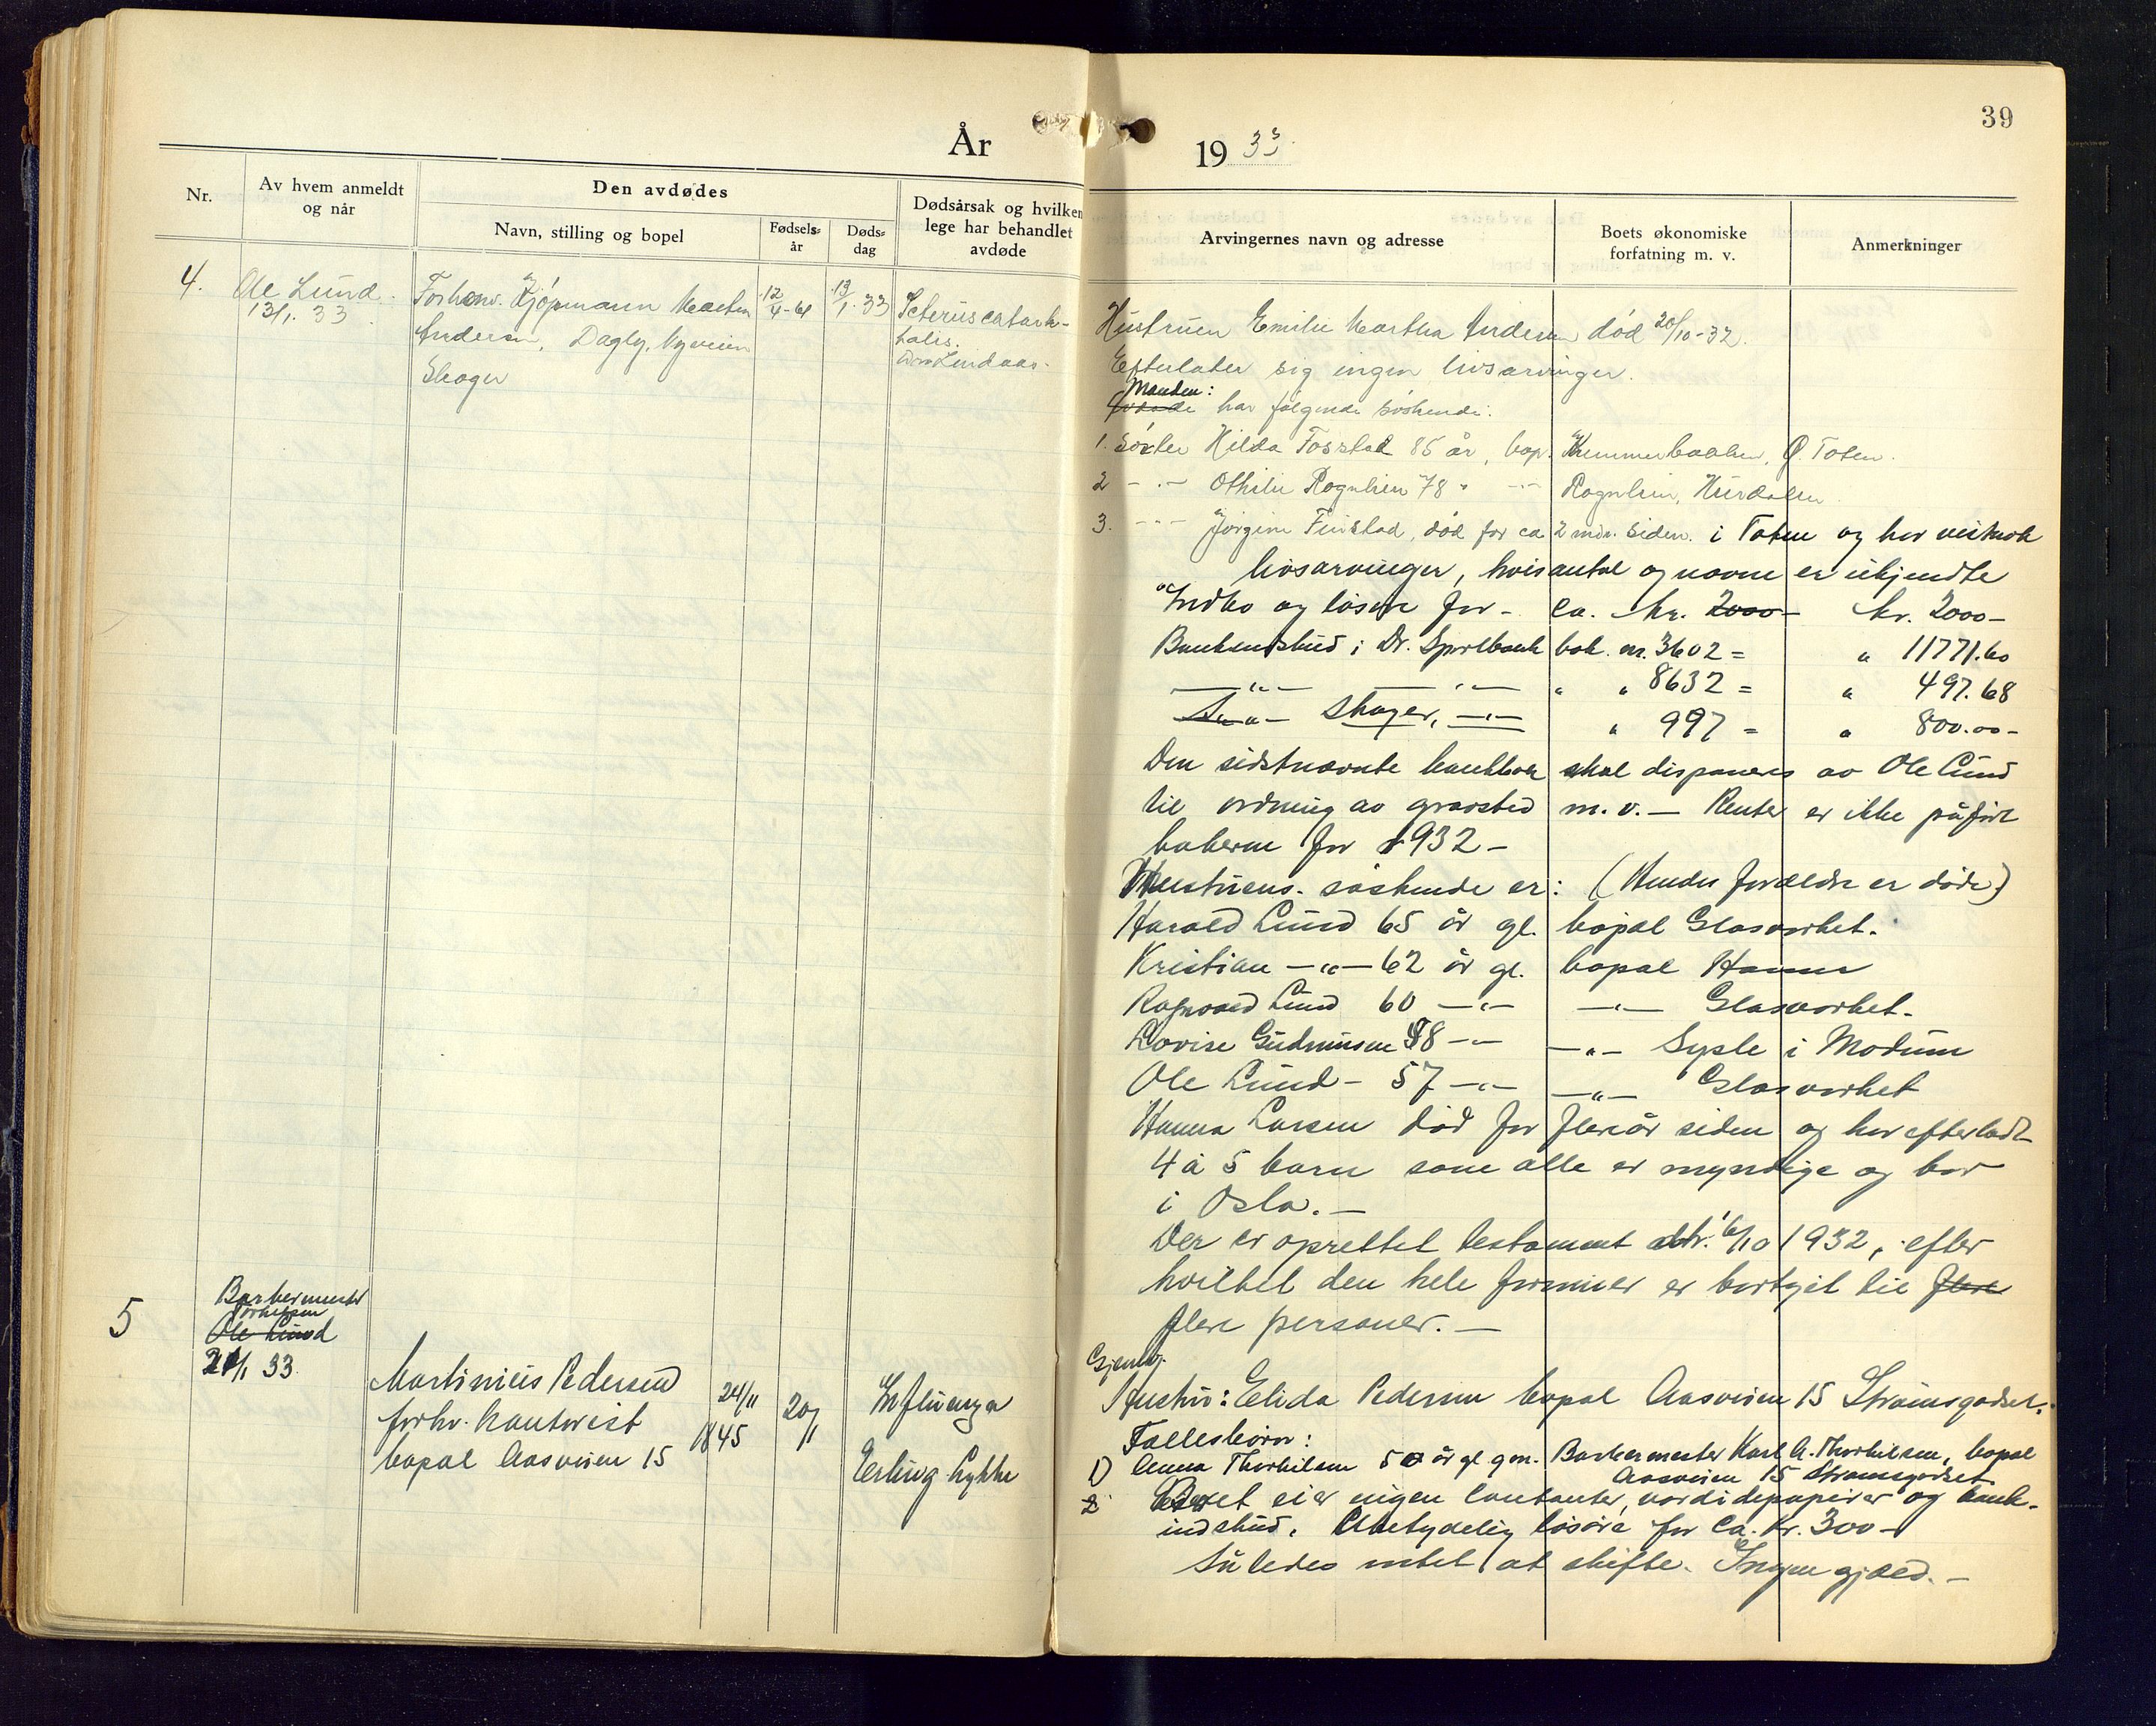 39
År 1933.
Nr.
Av hvem anmeldt
og når
Den avdødes
Navn, stilling og bopel
Fødsels-
år
Døds-
dag
Dødsårsak og hvilken
lege har behandlet
avdøde
Arvingernes navn og adresse
Boets økonomiske
forfatning m. v.
Anmerkninger
4.
Ole Lund.
13/1. 33
Forhenv. Kjöpmann Martin
Andersen, Dagly, Nyveien
Skoger
12/4-61
13/1. 33
Icterus catarr-
halis.
Lindaas.
Hustruen Emilie Martha Andersen död 20/10-32.
Efterlater sig ingen livsarvinger.
Manden:
Avdøde har følgende söskende:
1. Söster Hilda Fosstad 85 år, bop. Kummerbakken, Ø. Toten.
2 -"- Othilie Rognlien 78 " -"- Rognlien, Hurdalen.
3. -"- Jörgine Finstad, död for ca 2 mdr. siden. i Toten og har vistnok
livsarvinger, hvis antal og navne er ukjendte
Indbo og lösöre for - ca. kr. 2000- kr. 2000-
Bankindskud i Dr. Sparebank bok nr. 3602 = " 11771.60
-"- -"- " " 8632 = " 497.68
-"- Skoger, -"- " 997 = " 800.00-
Den sidstnævnte bankbok skal disponeres av Ole Lund
til ordning av gravsted m. v. - Renter er ikke påfört
bökerne for 1932 -
Hustruens söskende er: (Hendes forældre er döde.)
Harald Lund 65 år gl. bopæl Glasverket.
Kristian -"- 62 år gl. bopæl
Ragnvald Lund 60 -"- -"- Glasverket.
Lovise Gudmunsen 58 -"- -"- Sysle i Modum
Ole Lund - 57 -"- -"- Glasverket
Hanna Larsen död for flere år siden og har efterladt
4 à 5 barn som alle er myndige og bor
i Oslo. -
Der er oprettet testament dtr. 6/10 1932, efter
hvilket den hele formue er bortgit til flere
flere personer. -
5
Barbermester
Thorkilsen
Ole Lund
21/1 33.
Martinius Pedersen
forhv.
bopæl Aasveien 15
24/11
1845
20/1
Influenza
Erling Lykke
Gjenlev.
Hustru: Elida Pedersen bopæl Aasveien 15 Strømsgodset.
Fællesbörn:
1) Anna Thorkilsen 50 år gl. gm. Barbermester Karl A. Thorkilsen, bopæl
Aasveien 15 Strømsgodset
2 Boet eier ingen kontanter, værdidepapirer og bank-
indskud. Ubetydelig lösöre for ca. kr. 300-
Således intet at skifte. Ingen gjæld. -